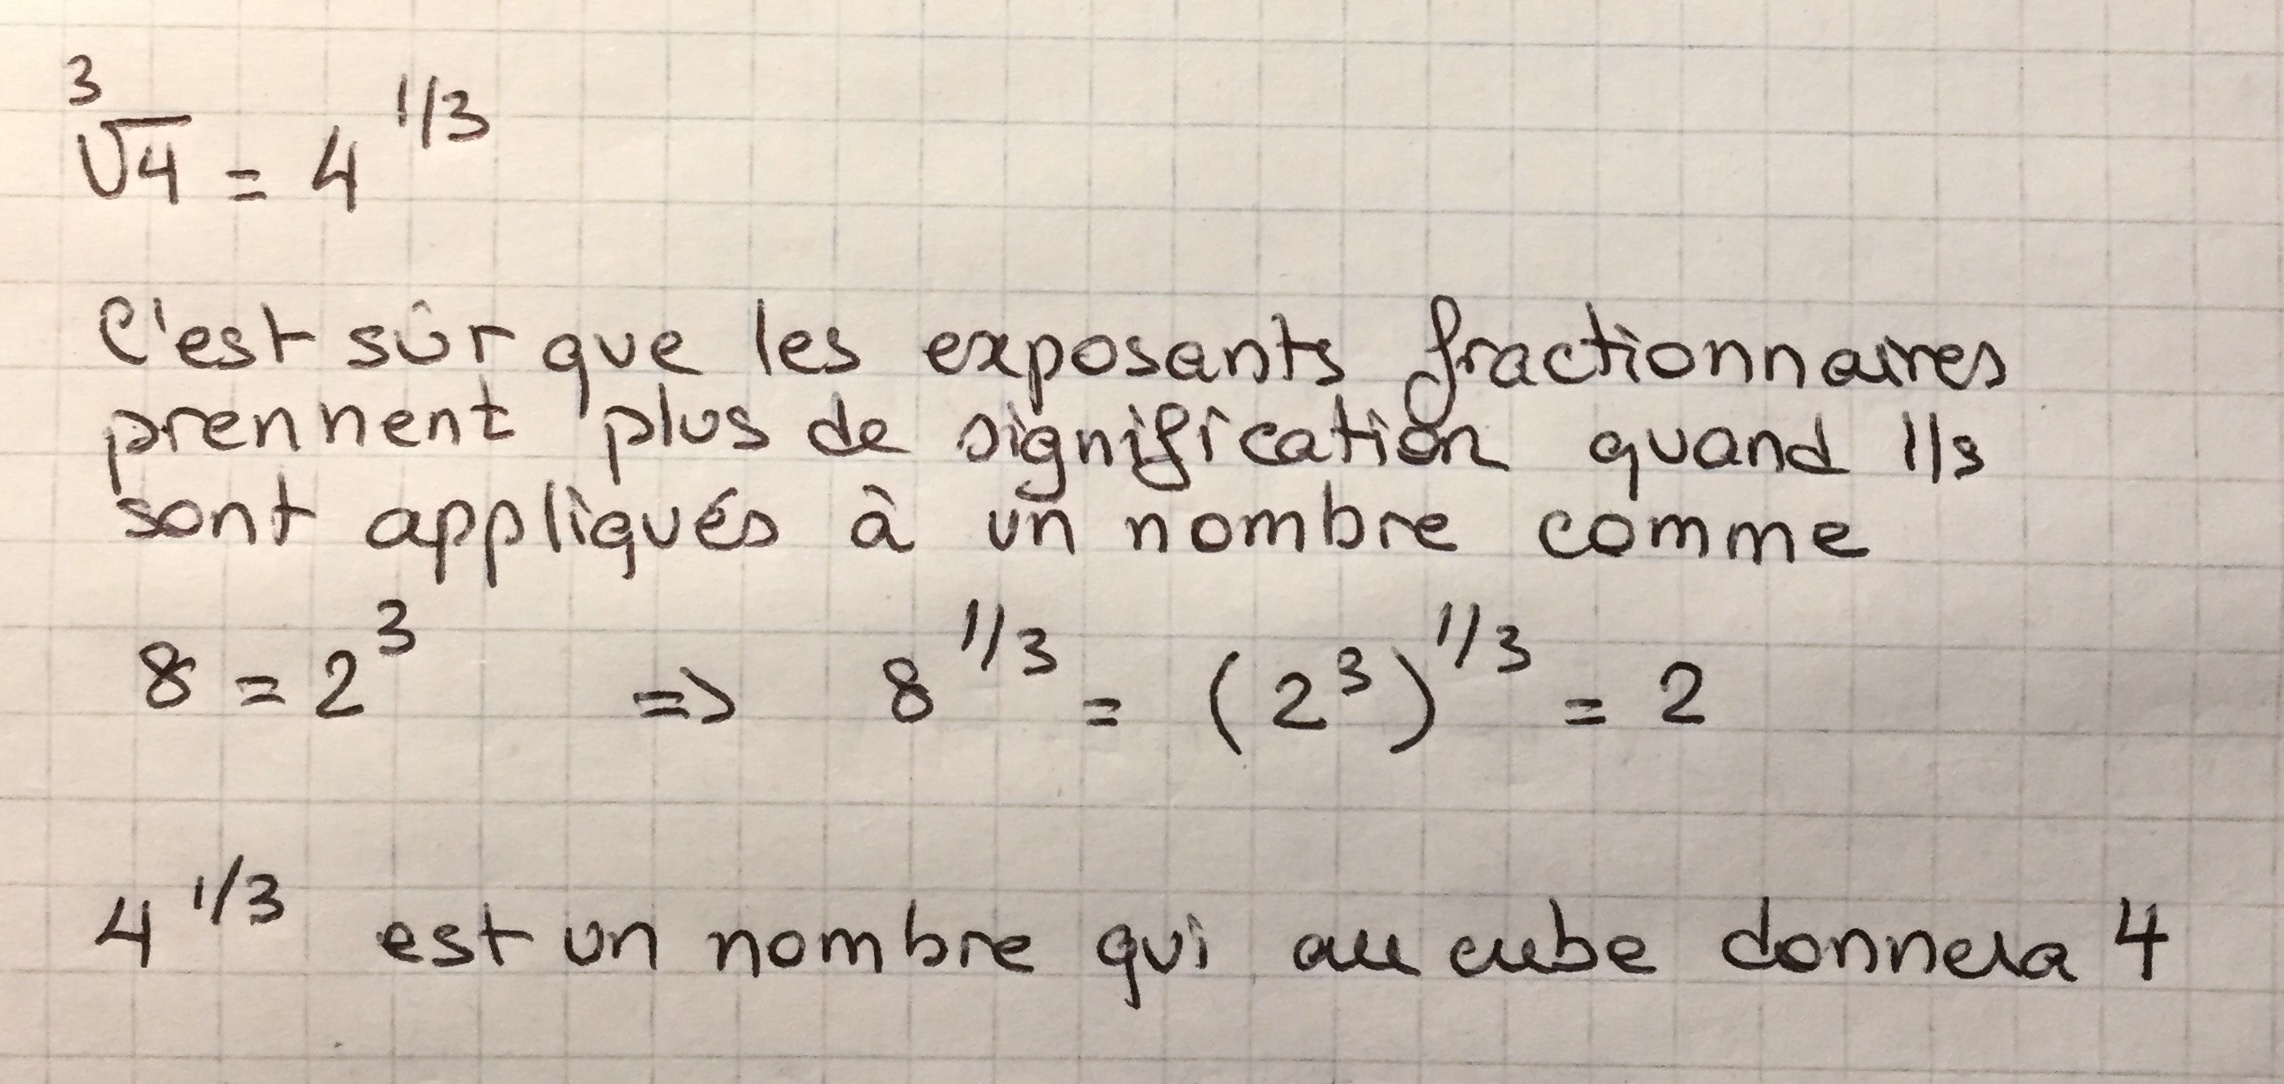 ³√4 = 4^{1/3}
C'est sûr que les exposants fractionnaires
prennent plus de signification quand ils
sont appliqués à un nombre comme
8 = 2³ => 8^{1/3} = (2³)^{1/3} = 2
4^{1/3} est un nombre qui au cube donnera 4